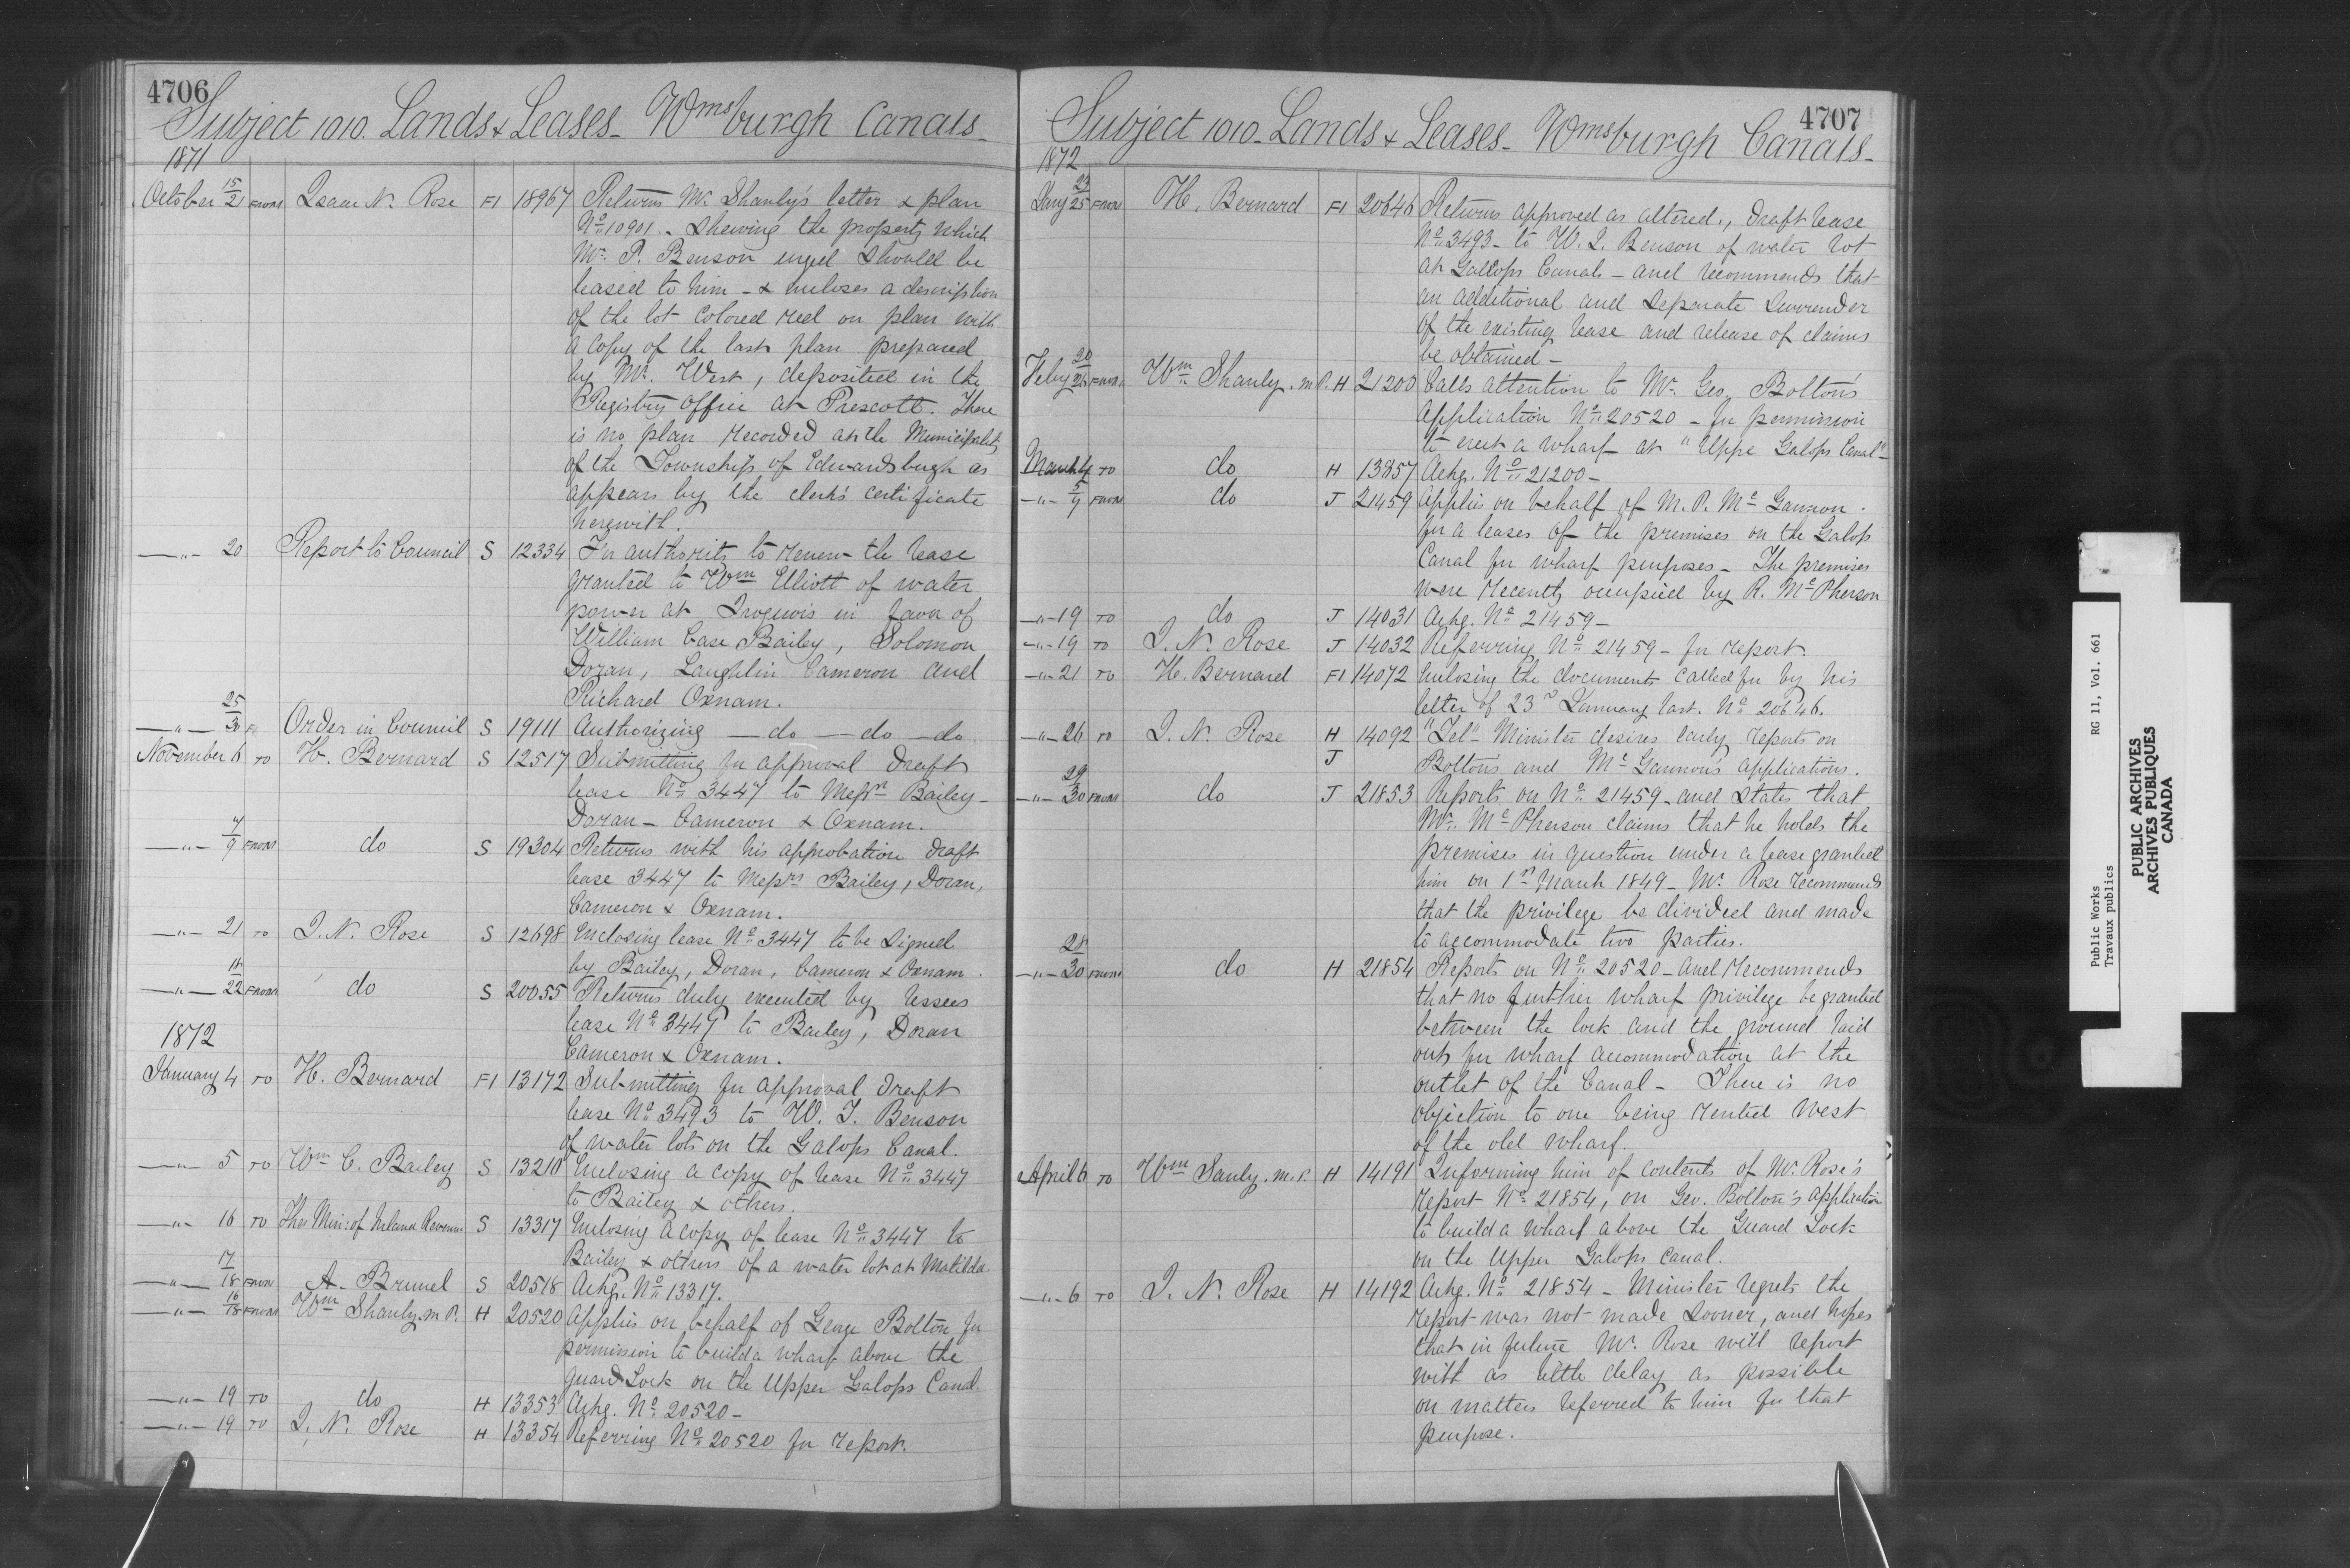 4706
Subject 1010. Lands & Leases - Wmsburgh Canals -
1871
October 15/21 FROM Isaac N. Rose F1 18967 Returns Mr. Shanly's letter & plan
No. 10901 - Shewing the property which
Mr. P. Benson urged should be
leased to him - & encloses a description
of the lot colored red on plan with
a copy of the last plan prepared
by Mr. West, deposited in the
Registry Office at Prescott. There
is no plan recorded at the Municipality
of the Township of Edwardsburgh as
appears by the clerk's certificate
herewith.
—"— 20 Report to Council S 12334 For authority to renew the lease
granted to Wm Elliott of water
power at Iroquois in favor of
William Case Bailey, Solomon
Doran, Laughlin Cameron and
Richard Oxnam.
—"— 25/30 Order in Council S 19111 Authorizing — do — do — do
November 6 TO H. Bernard S 12517 Submitting for approval Draft
lease No. 3447 to Messrs Bailey -
Doran - Cameron & Oxnam.
—"— 7/9 FROM do S 19304 Returns with his approbation draft
lease 3447 to Messrs Bailey, Doran,
Cameron & Oxnam.
—"— 21 TO I. N. Rose S 12698 Enclosing lease No. 3447 to be signed
by Bailey, Doran, Cameron & Oxnam.
—"— 18/22 FROM do S 20055 Returns duly executed by lessees
lease No. 3447 to Bailey, Doran
Cameron & Oxnam.
1872
January 4 TO H. Bernard F1 13172 Submitting for approval Draft
lease No. 3493 to W. T. Benson
of water lots on the Galops Canal.
—"— 5 TO Wm C. Bailey S 13210 Enclosing a copy of lease No. 3447
to Bailey & others.
—"— 16 TO The Min: of Inland Revenue S 13317 Enclosing a copy of lease No. 3447 to
Bailey & others of a water lot at Matilda
—"— 17/18 FROM A. Brunel S 20518 Ackg. No. 13317.
—"— 16/18 FROM Wm Shanly. M.P. H 20520 Applies on behalf of George Bolton for
permission to build a wharf above the
guard Lock on the Upper Galops Canal.
—"— 19 TO do H 13353 Ackg. No. 20520 -
—"— 19 TO I. N. Rose H 13354 Referring No. 20520 for report.
4707
Subject 1010 - Lands & Leases - Wmsburgh Canals -
1872
Jany 23/25 FROM H. Bernard F1 20646 Returns approved as altered., Draft lease
No. 3493 - to W. I. Benson of water lot
at Gallops Canal - and recommends that
an additional and separate surrender
of the existing lease and release of claims
be obtained -
Feby 20/26 FROM Wm Shanly. M.P. H 21200 Calls attention to Mr. Geo. Bolton's
application No. 20520 - for permission
to erect a wharf at "Uppe Galops Canal" -
March 4 TO do H 13857 Ackg. No. 21200 -
—"— 5/7 FROM do J 21459 Applies on behalf of M. P. McGannon.
for a leases of the premises on the Galops
Canal for wharf purposes - The premises
were recently occupied by R. McPherson
—"— 19 TO do J 14031 Ackg. No. 21459 -
—"— 19 TO I. N. Rose J 14032 Referring No. 21459 - for report.
—"— 21 TO H. Bernard F1 14072 Enclosing the documents called for by his
letter of 23rd January last. No. 20646.
—"— 26 TO I. N. Rose H 14092 "Tel" Minister desires early reports on
J Bolton's and McGannon's applications.
—"— 29/30 FROM do J 21853 Reports on No. 21459 - and states that
Mr. McPherson claims that he holds the
premises in question under a lease granted
him on 1st March 1849 - Mr. Rose recommends
that the privilege be divided and made
to accommodate two parties.
—"— 28/30 FROM do H 21854 Reports on No. 20520 - and recommends
that no further wharf privilege be granted
between the lock and the ground laid
out for wharf accommodation at the
outlet of the Canal - There is no
objection to one being rented West
of the old wharf.
April 6 TO Wm Sanly. M.P. H 14191 Informing him of contents of Mr. Rose's
report No. 21854, on Geo. Bolton's application
to build a wharf above the Guard Lock
on the Upper Galops Canal.
—"— 6 TO I. N. Rose H 14192 Ackg. No. 21854 - Minister regrets the
report was not made sooner, and hopes
that in future Mr. Rose will report
with as little delay as possible
on matters referred to him for that
purpose.
Public Works RG 11, Vol. 661
Travaux publics
PUBLIC ARCHIVES
ARCHIVES PUBLIQUES
CANADA